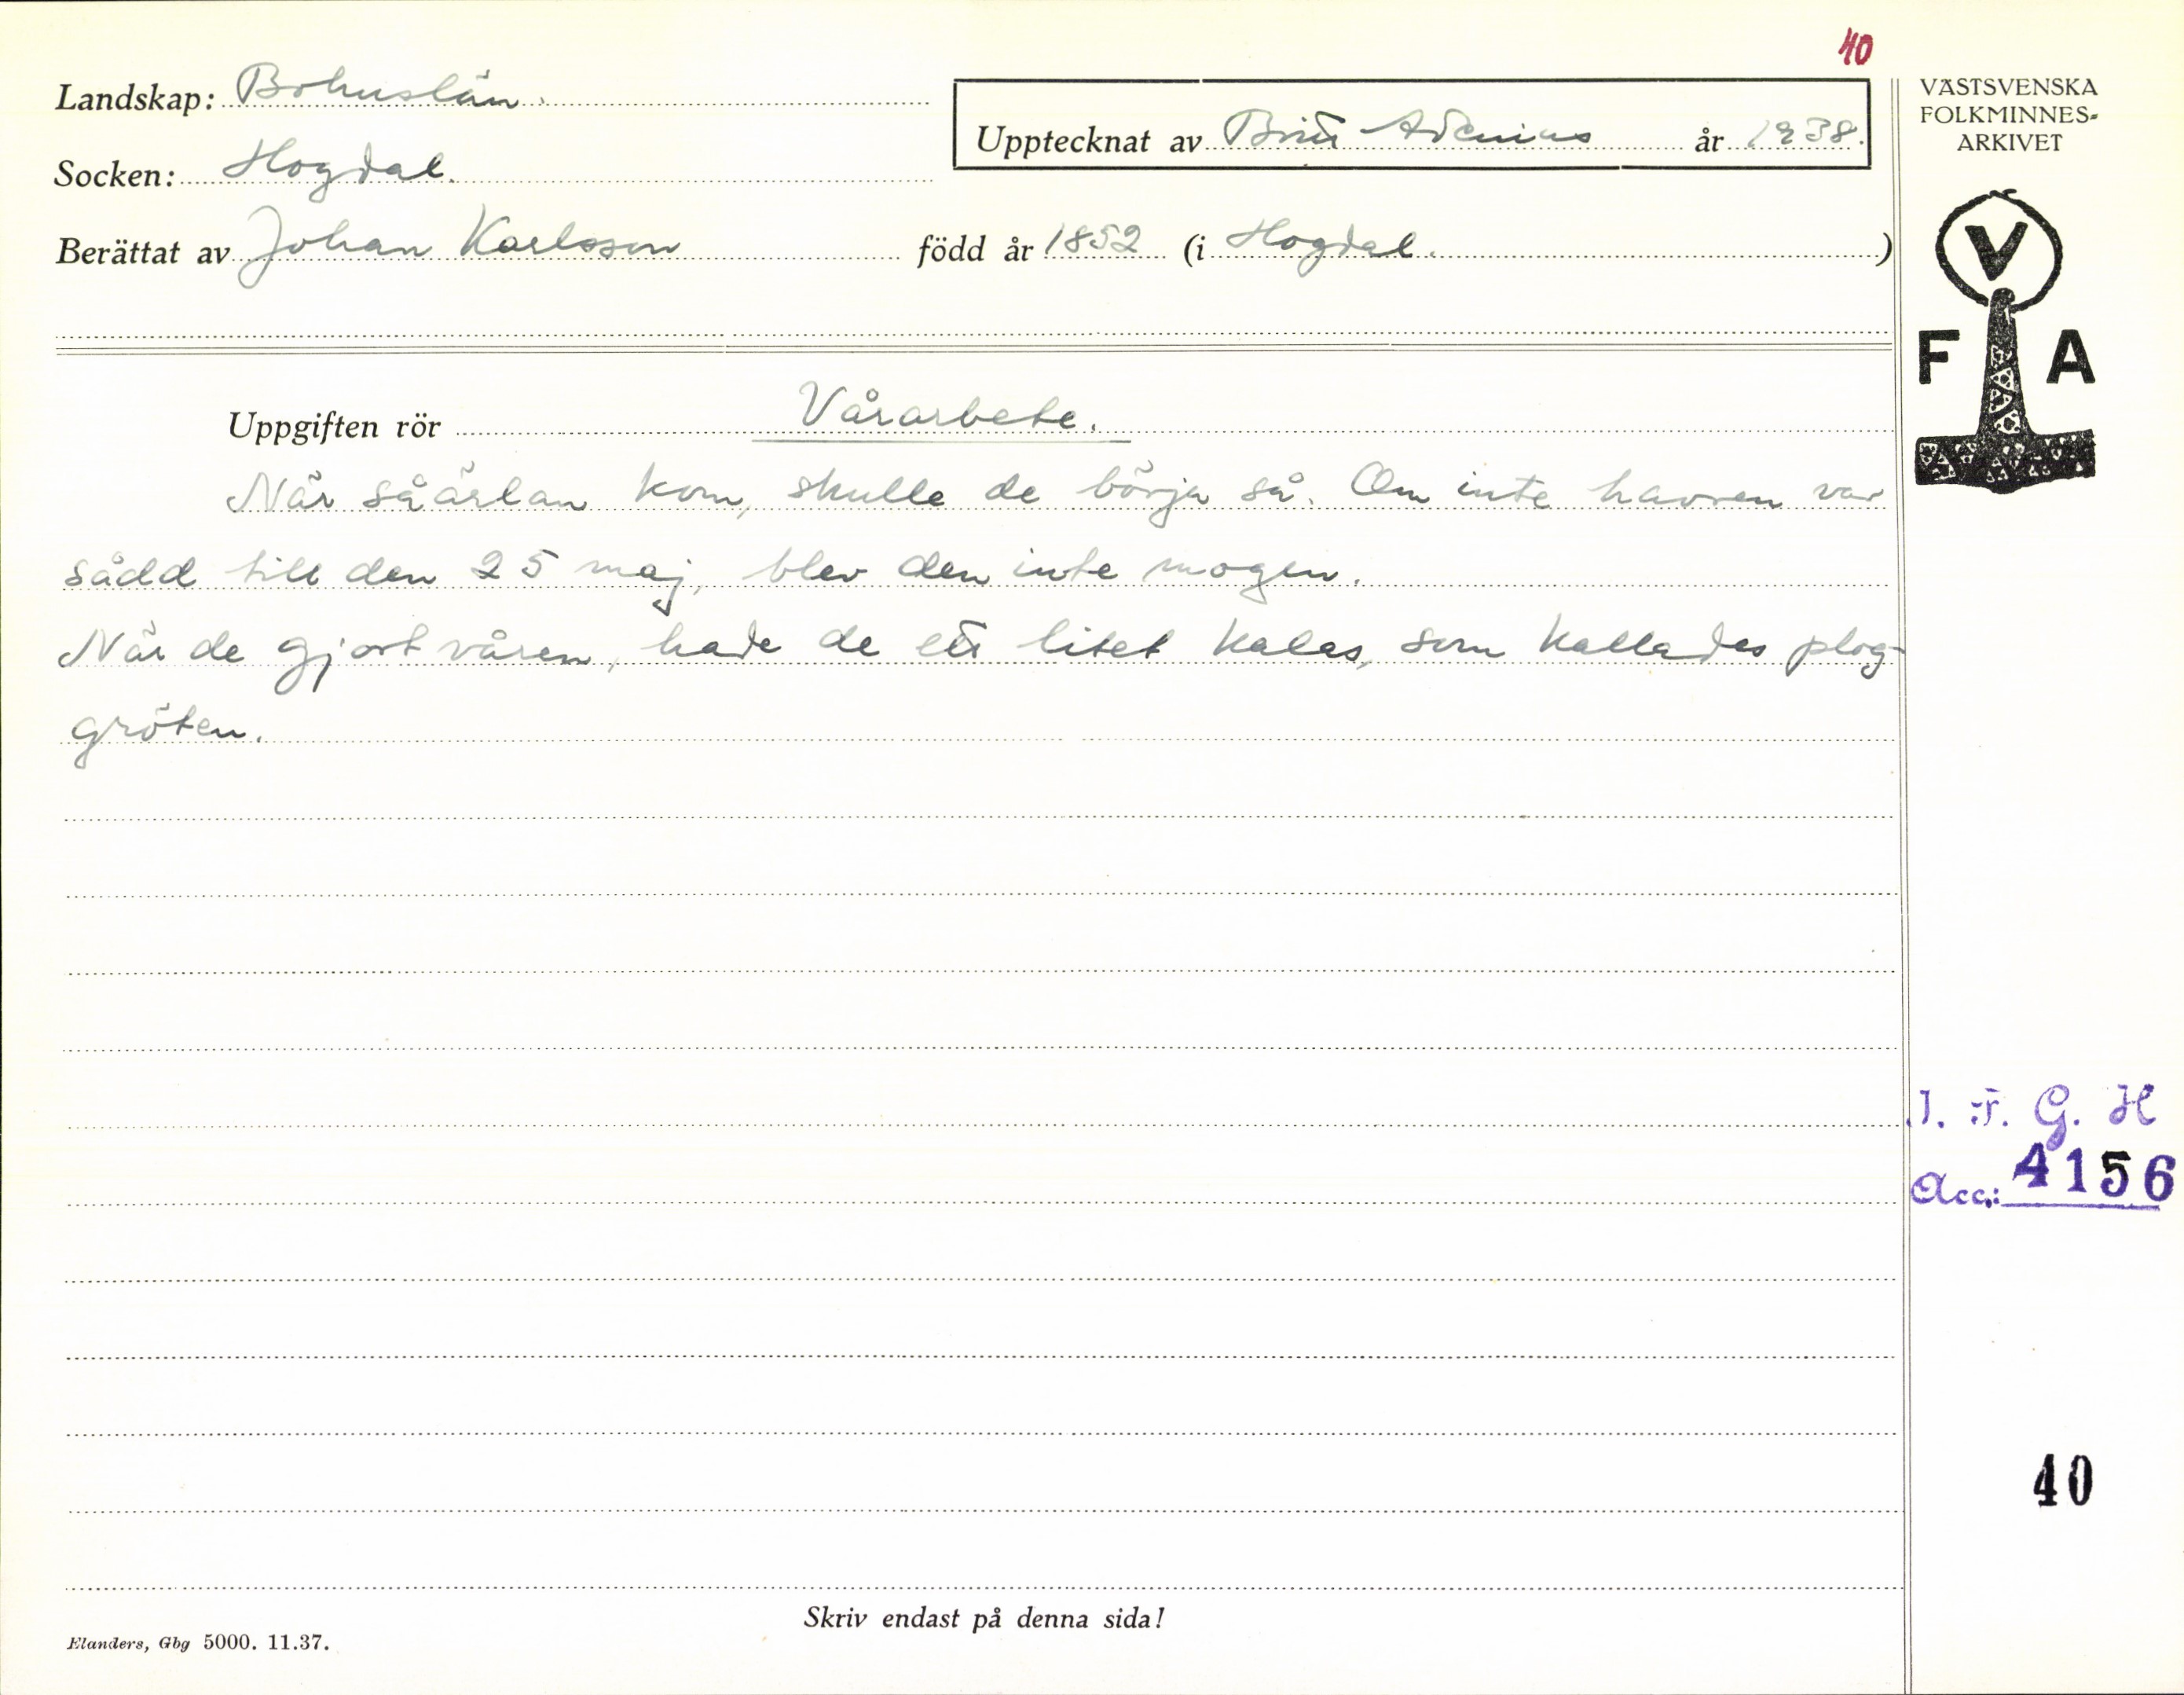 40
Landskap: Bohuslän.
Upptecknat av Britt Adenius år 1938.
Socken: Hogdal.
Berättat av Johan Karlsson född år 1852 (i Hogdal. )
VÄSTSVENSKA
FOLKMINNES-
ARKIVET
V
F A
Uppgiften rör Vårarbete.
När såärlan kom, skulle de börja så. Om inte havren var
sådd till den 25 maj, blev den inte mogen.
När de gjort våren, hade de ett litet kalas, som kallades plog-
gröten.
I. F. G. H
Acc.: 4156
40
Skriv endast på denna sida!
Elanders, Gbg 5000. 11.37.